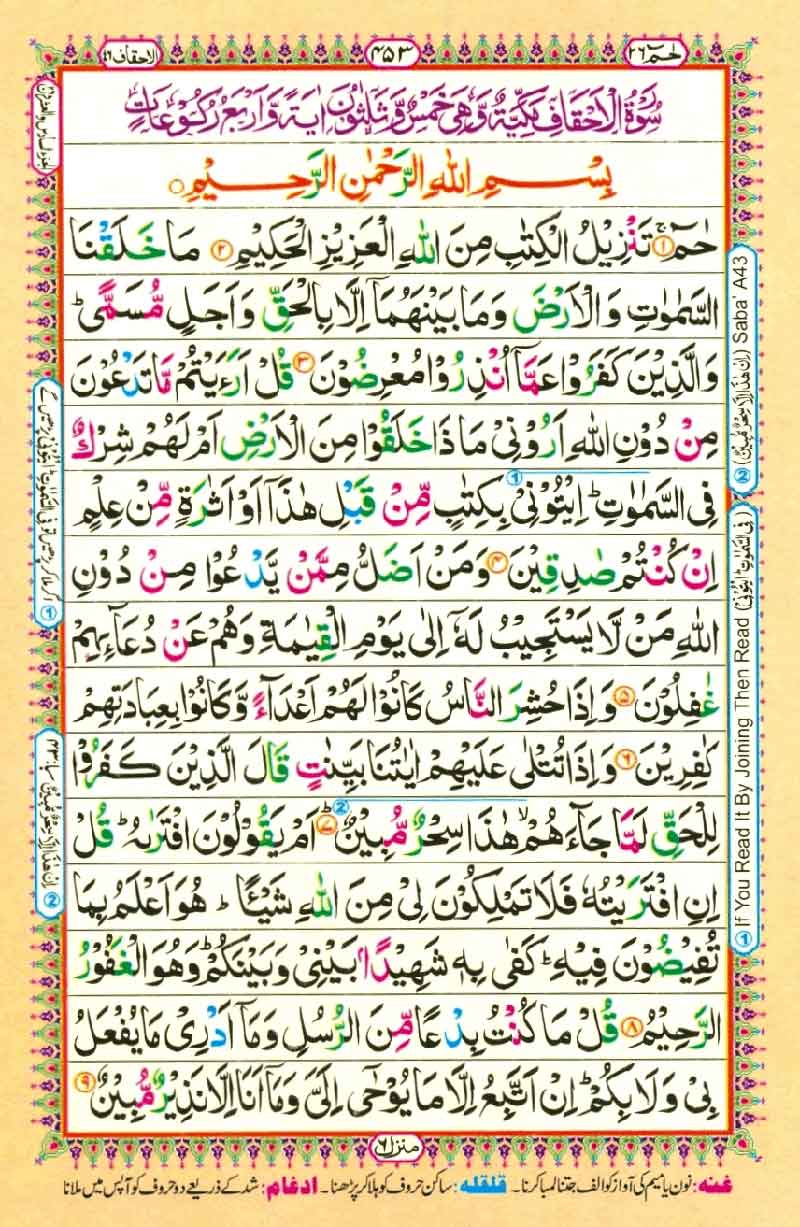 حٰمٓ ٢٦
٤٥٣
الاحقاف ٤٦
سُوْرَةُ الْاَحْقَافِ مَكِّيَّةٌ وَّهِىَ خَمْسٌ وَّثَلٰثُوْنَ اٰيَةً وَّاَرْبَعُ رُكُوْعَاتٍ
بِسْمِ اللّٰهِ الرَّحْمٰنِ الرَّحِيْمِ ۝
حٰمٓ ۝١ تَنْزِيْلُ الْكِتٰبِ مِنَ اللّٰهِ الْعَزِيْزِ الْحَكِيْمِ ۝٢ مَا خَلَقْنَا
السَّمٰوٰتِ وَالْاَرْضَ وَمَا بَيْنَهُمَآ اِلَّا بِالْحَقِّ وَاَجَلٍ مُّسَمًّىؕ
وَالَّذِيْنَ كَفَرُوْا عَمَّآ اُنْذِرُوْا مُعْرِضُوْنَ ۝٣ قُلْ اَرَءَيْتُمْ مَّا تَدْعُوْنَ
مِنْ دُوْنِ اللّٰهِ اَرُوْنِىْ مَاذَا خَلَقُوْا مِنَ الْاَرْضِ اَمْ لَهُمْ شِرْكٌ
فِى السَّمٰوٰتِؕ اِيْتُوْنِىْ بِكِتٰبٍ مِّنْ قَبْلِ هٰذَآ اَوْ اَثٰرَةٍ مِّنْ عِلْمٍ
اِنْ كُنْتُمْ صٰدِقِيْنَ ۝٤ وَمَنْ اَضَلُّ مِمَّنْ يَّدْعُوْا مِنْ دُوْنِ
اللّٰهِ مَنْ لَّا يَسْتَجِيْبُ لَهٗٓ اِلٰى يَوْمِ الْقِيٰمَةِ وَهُمْ عَنْ دُعَآئِهِمْ
غٰفِلُوْنَ ۝٥ وَاِذَا حُشِرَ النَّاسُ كَانُوْا لَهُمْ اَعْدَآءً وَّكَانُوْا بِعِبَادَتِهِمْ
كٰفِرِيْنَ ۝٦ وَاِذَا تُتْلٰى عَلَيْهِمْ اٰيٰتُنَا بَيِّنٰتٍ قَالَ الَّذِيْنَ كَفَرُوْا
لِلْحَقِّ لَمَّا جَآءَهُمْۙ هٰذَا سِحْرٌ مُّبِيْنٌ ۝٧ؕ اَمْ يَقُوْلُوْنَ افْتَرٰىهُؕ قُلْ
اِنِ افْتَرَيْتُهٗ فَلَا تَمْلِكُوْنَ لِىْ مِنَ اللّٰهِ شَيْئًاؕ هُوَ اَعْلَمُ بِمَا
تُفِيْضُوْنَ فِيْهِؕ كَفٰى بِهٖ شَهِيْدًۢا بَيْنِىْ وَبَيْنَكُمْؕ وَهُوَ الْغَفُوْرُ
الرَّحِيْمُ ۝٨ قُلْ مَا كُنْتُ بِدْعًا مِّنَ الرُّسُلِ وَمَآ اَدْرِىْ مَا يُفْعَلُ
بِىْ وَلَا بِكُمْؕ اِنْ اَتَّبِعُ اِلَّا مَا يُوْحٰٓى اِلَىَّ وَمَآ اَنَا اِلَّا نَذِيْرٌ مُّبِيْنٌ ۝٩
① If You Read It By Joining Then Read (فِى السَّمٰوٰتِ ايْتُوْنِىْ)
② (اِنْ هٰذَآ اِلَّا سِحْرٌ مُّبِيْنٌ) Saba' A43
② اِنْ هٰذَآ اِلَّا سِحْرٌ مُّبِيْنٌ سبا: ٤٣
منزل ٦
غنه: نون یا میم کی آواز کو الف جتنا لمبا کرنا۔ قلقلہ: ساکن حروف کو ہلا کر پڑھنا۔ ادغام: شد کے ذریعے دو حروف کو آپس میں ملانا